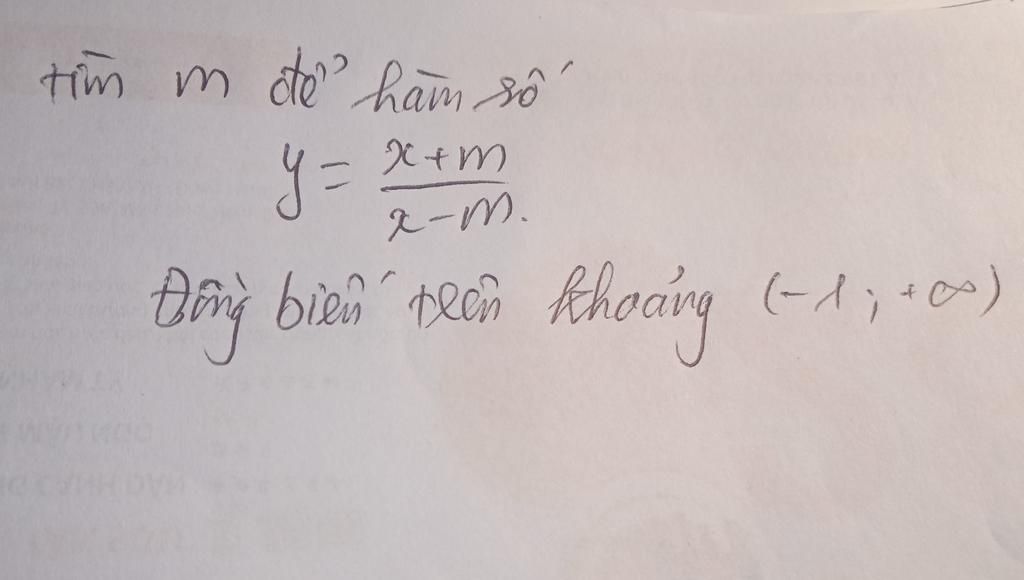 tìm m để hàm số
y = x+m / x-m.
Đồng biến trên khoảng (-1; +∞)